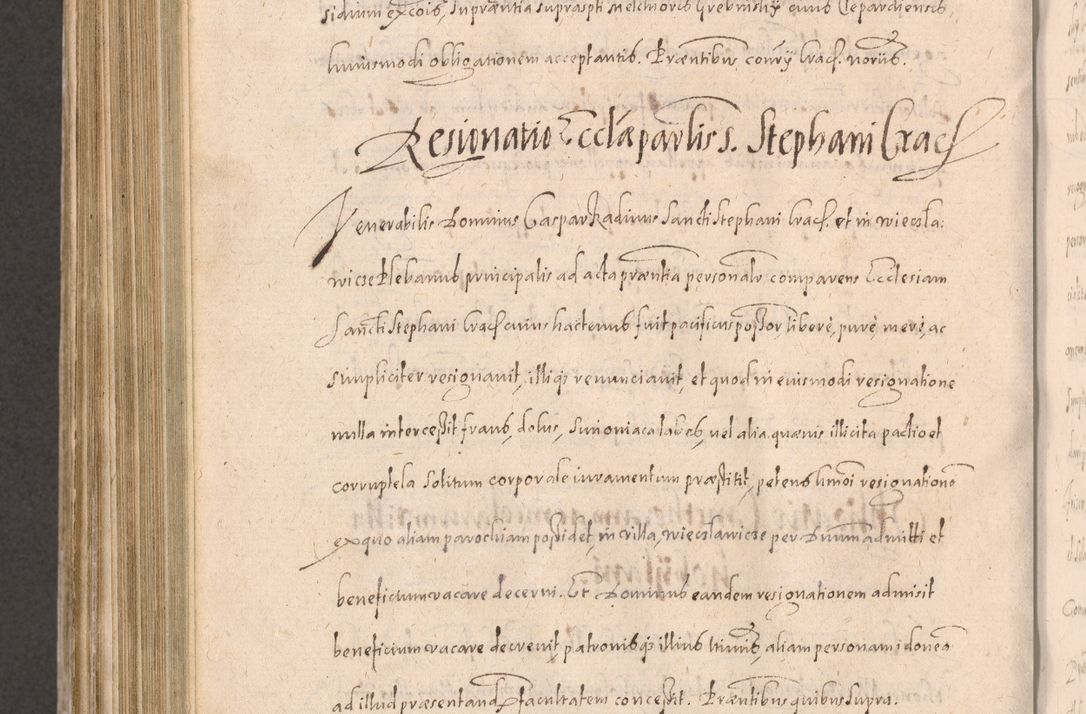 sidium ex cois, In præntia supraspti Melchioris Grebinskÿ civis Clepardiensis,
huiusmodi obligationem acceptantis. Præntibus, convÿ Cracs. notriis.
Resignatio Ecclæ parlis s. Stephani Cracs
Venerabilis Dominus Gaspar Radimus Sancti Stephani Cracs. et in wiecsla:
wicze Plebanus principalis ad acta præntia personalr comparens Ecclesiam
Sancti Stephani Cracs cuius hactenus fuit pacificus possor, liberè, purè, merè, ac
Simpliciter resignavit, illiqs renunciavit, et quod in eiusmodi resignatione
nulla intercessit fraus, dolus, Simoniaca labes, vel alia quævis illicita pactio et
corruptela Solitum corporale iuramentum præstitit, petens hmoi resignatione
ex quo aliam parochiam possidet, in villa, wieczlawicze per Dnum admitti et
beneficium vacare decerni. Et Dominus eandem resignationem admisit
beneficium vacare decrevit, patronisqs illius ltimis, aliam personam idonea
ad illud præsentand facultatem concessit. Præntibus quibus supra.